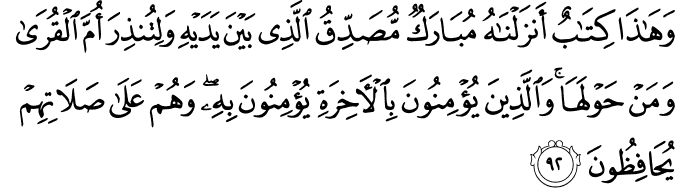 وَهَٰذَا كِتَٰبٌ أَنزَلْنَٰهُ مُبَارَكٌ مُّصَدِّقُ ٱلَّذِى بَيْنَ يَدَيْهِ وَلِتُنذِرَ أُمَّ ٱلْقُرَىٰ
وَمَنْ حَوْلَهَا ۚ وَٱلَّذِينَ يُؤْمِنُونَ بِٱلْءَاخِرَةِ يُؤْمِنُونَ بِهِۦ ۖ وَهُمْ عَلَىٰ صَلَاتِهِمْ
يُحَافِظُونَ ٩٢